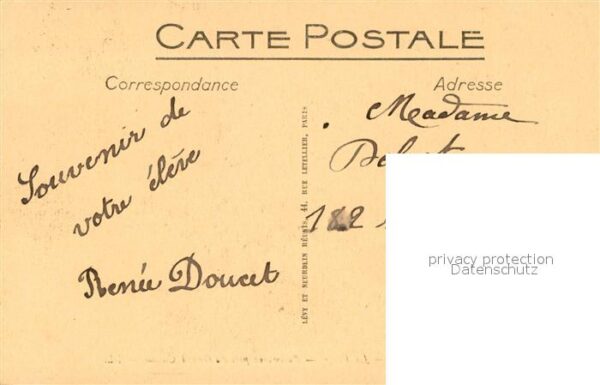 CARTE POSTALE
Correspondance
Adresse
Souvenir de
votre élève
Renée Doucet
LÉVY ET NEURDEIN RÉUNIS, 44, RUE LETELLIER, PARIS
Madame
182
privacy protection
Datenschutz